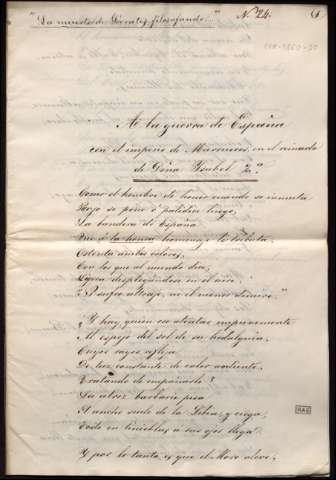 "La muerte de Socrates filosofando."
N. 24.
A la guerra de España
con el imperio de Marruecos, en el reinado
de Doña Ysabel 2.ª
Como el hombre de honor cuando se inmuta
Rojo se pone ó palidez luego,
La bandera de España
Que á la honra homenaje le tributa,
Ostenta ambos colores,
Con los que al mundo dice,
desplegándose en el aire:
"Ni sufro ultraje, ni el menor desaire."
¿Y hay quien ose atentar impunemente
Al espejo del sol de su hidalguía,
Cuyos rayos refleja
De luz constante de calor ardiente,
Tratando de empañarlo?
La atroz barbarie pisa
El ancho suelo de la Libia, y ciega,
Todo en tinieblas a sus ojos llega.
Y por lo tanto, es que el Moro aleve,
RAE